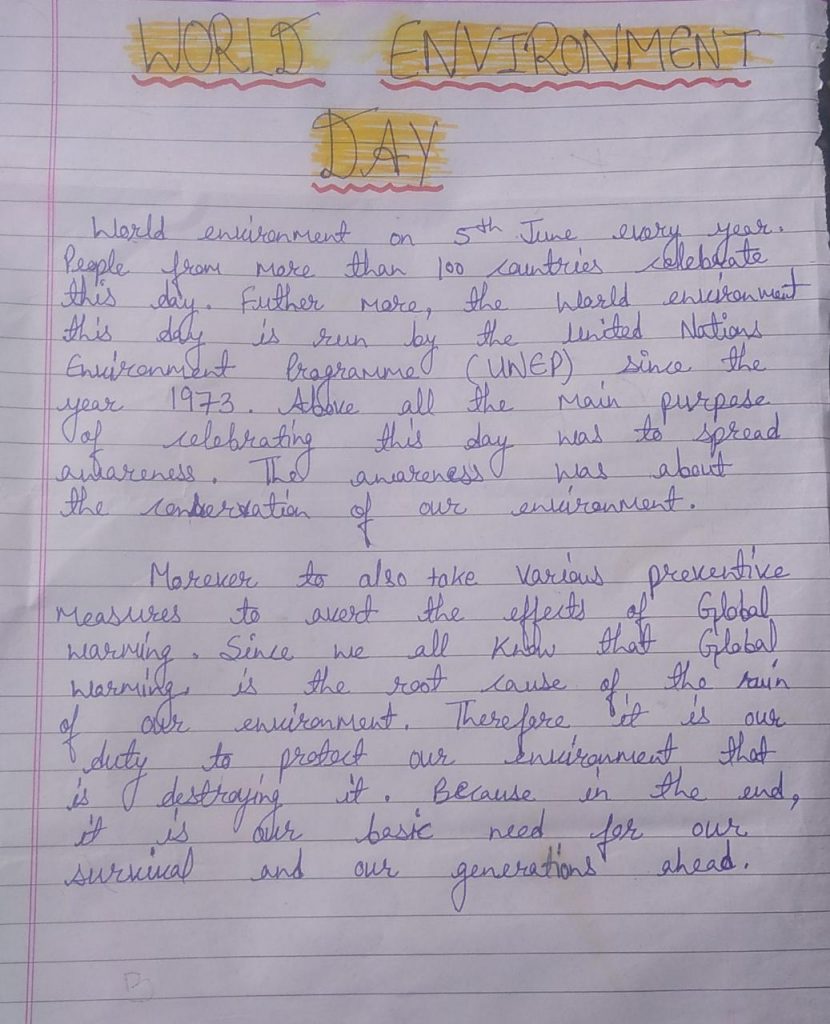 WORLD ENVIRONMENT
DAY
World environment on 5th June every year.
People from more than 100 countries celebrate
this day. Futher more, the world environment
this day is run by the United Nations
Environment Programme (UNEP) since the
year 1973. Above all the main purpose
of celebrating this day was to spread
awareness. The awareness was about
the conservation of our environment.
Morever to also take various preventive
measures to avert the effects of Global
warming. Since we all know that Global
warming, is the root cause of the ruin
of our environment. Therefore it is our
duty to protect our environment that
is destroying it. Because in the end,
it is our basic need for our
survival and our generations ahead.